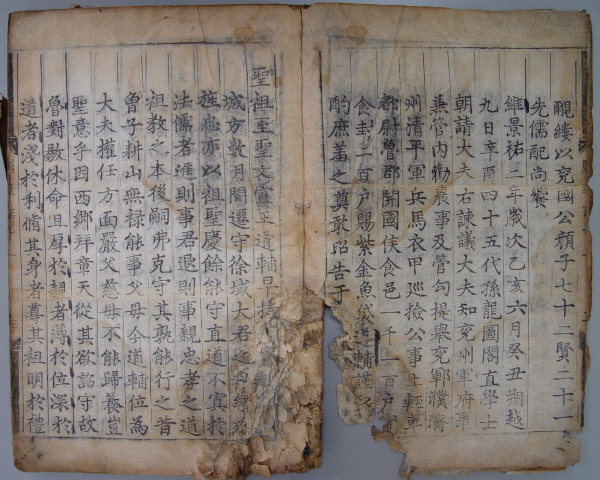 覼縷以兖國公顔子七十二賢二十一
先儒配尚饗
維景祐二年歲次乙亥六月癸丑朔越
九日辛酉四十五代孫龍圖閣直學士
朝請大夫右諫議大夫知兖州軍府事
兼管内勸農事及管勾提舉兖鄆濮濟
州清平軍兵馬衣甲巡撿公事上輕車
都尉魯郡開國侯食邑一千一百户實
食封二百户賜紫金魚袋道輔謹以
酌庶羞之奠敢昭告于
聖祖至聖文宣王道輔
城方數月間遷守徐城大君之
旌忠亦以祖聖慶餘能守直道不寘於
法儒者進則事君退則事親忠孝之道
祖教之本後嗣弗克守其孰能行之昔
曾子耕山無禄能事父母今道輔位為
大夫權任方面嚴父慈母不能歸養豈
聖意乎因西郷拜章天從其欲詔守故
魯對敭休命且厚於親者薄於位深於
道者淺於利脩其身者尊其祖明於禮